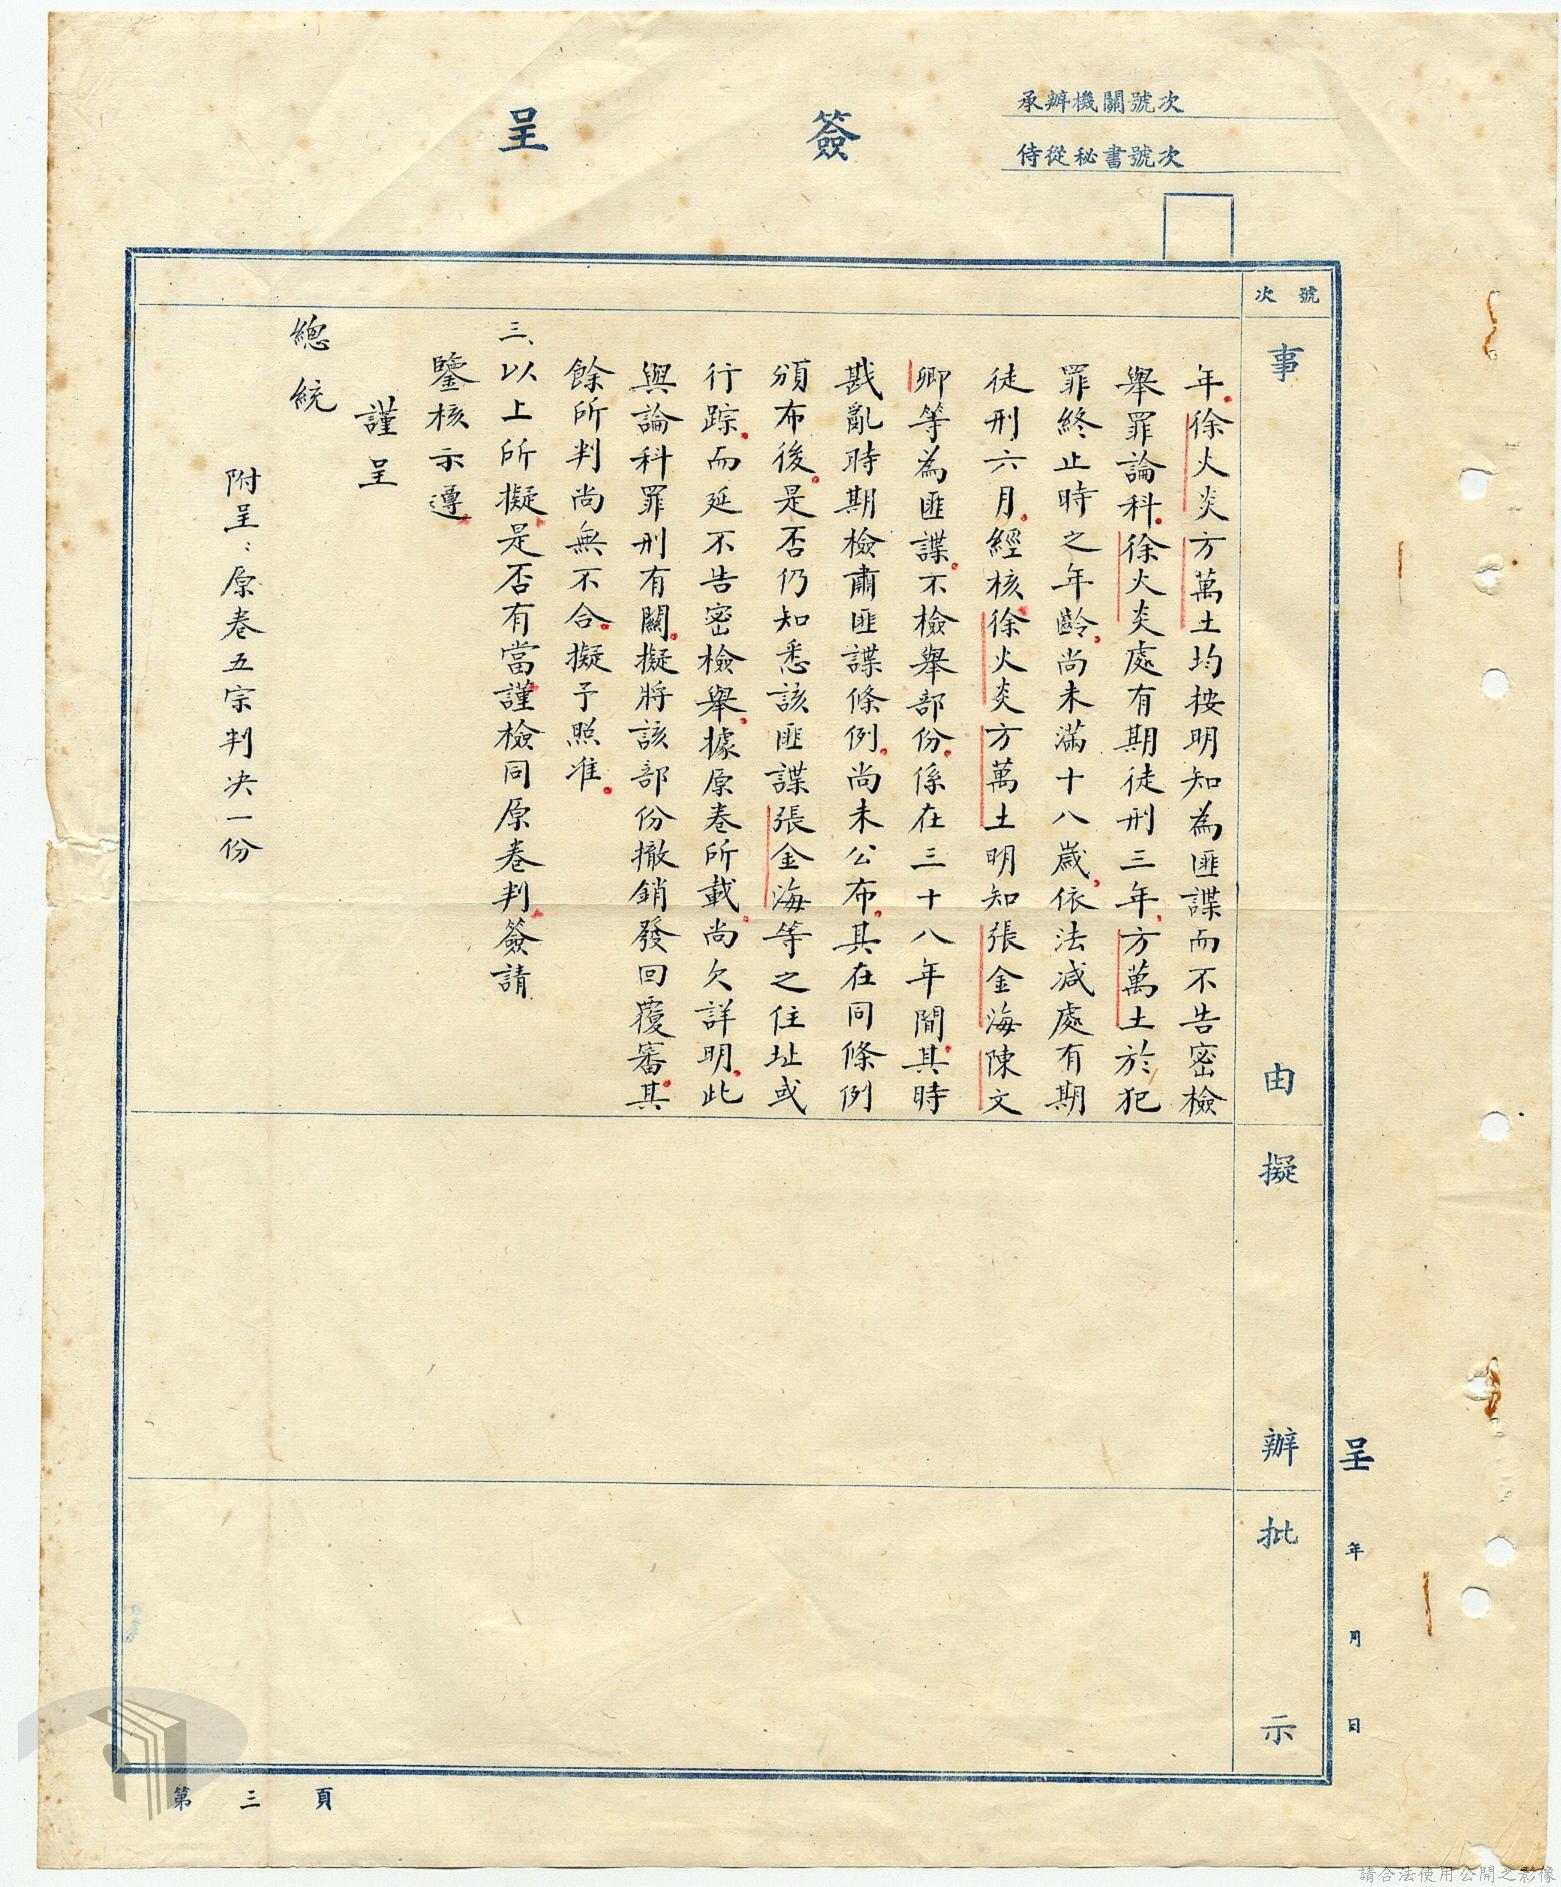 承辦機關號次
侍從秘書號次
簽呈
號次
事由
擬辦
批示
年徐火炎方萬土均按明知為匪諜而不告密檢
舉罪論科徐火炎處有期徒刑三年方萬土於犯
罪終止時之年齡尚未滿十八歲依法減處有期
徒刑六月經核徐火炎方萬土明知張金海陳文
卿等為匪諜不檢舉部份係在三十八年間其時
戡亂時期檢肅匪諜條例尚未公布其在同條例
頒布後是否仍知悉該匪諜張金海等之住址或
行踪而延不告密檢舉據原卷所載尚欠詳明此
與論科罪刑有關擬將該部份撤銷發回覆審其
餘所判尚無不合擬予照准
三、以上所擬是否有當謹檢同原卷判簽請
鑒核示遵
謹呈
總統
附呈：原卷五宗判決一份
呈 年 月 日
第三頁
請合法使用公開之影像